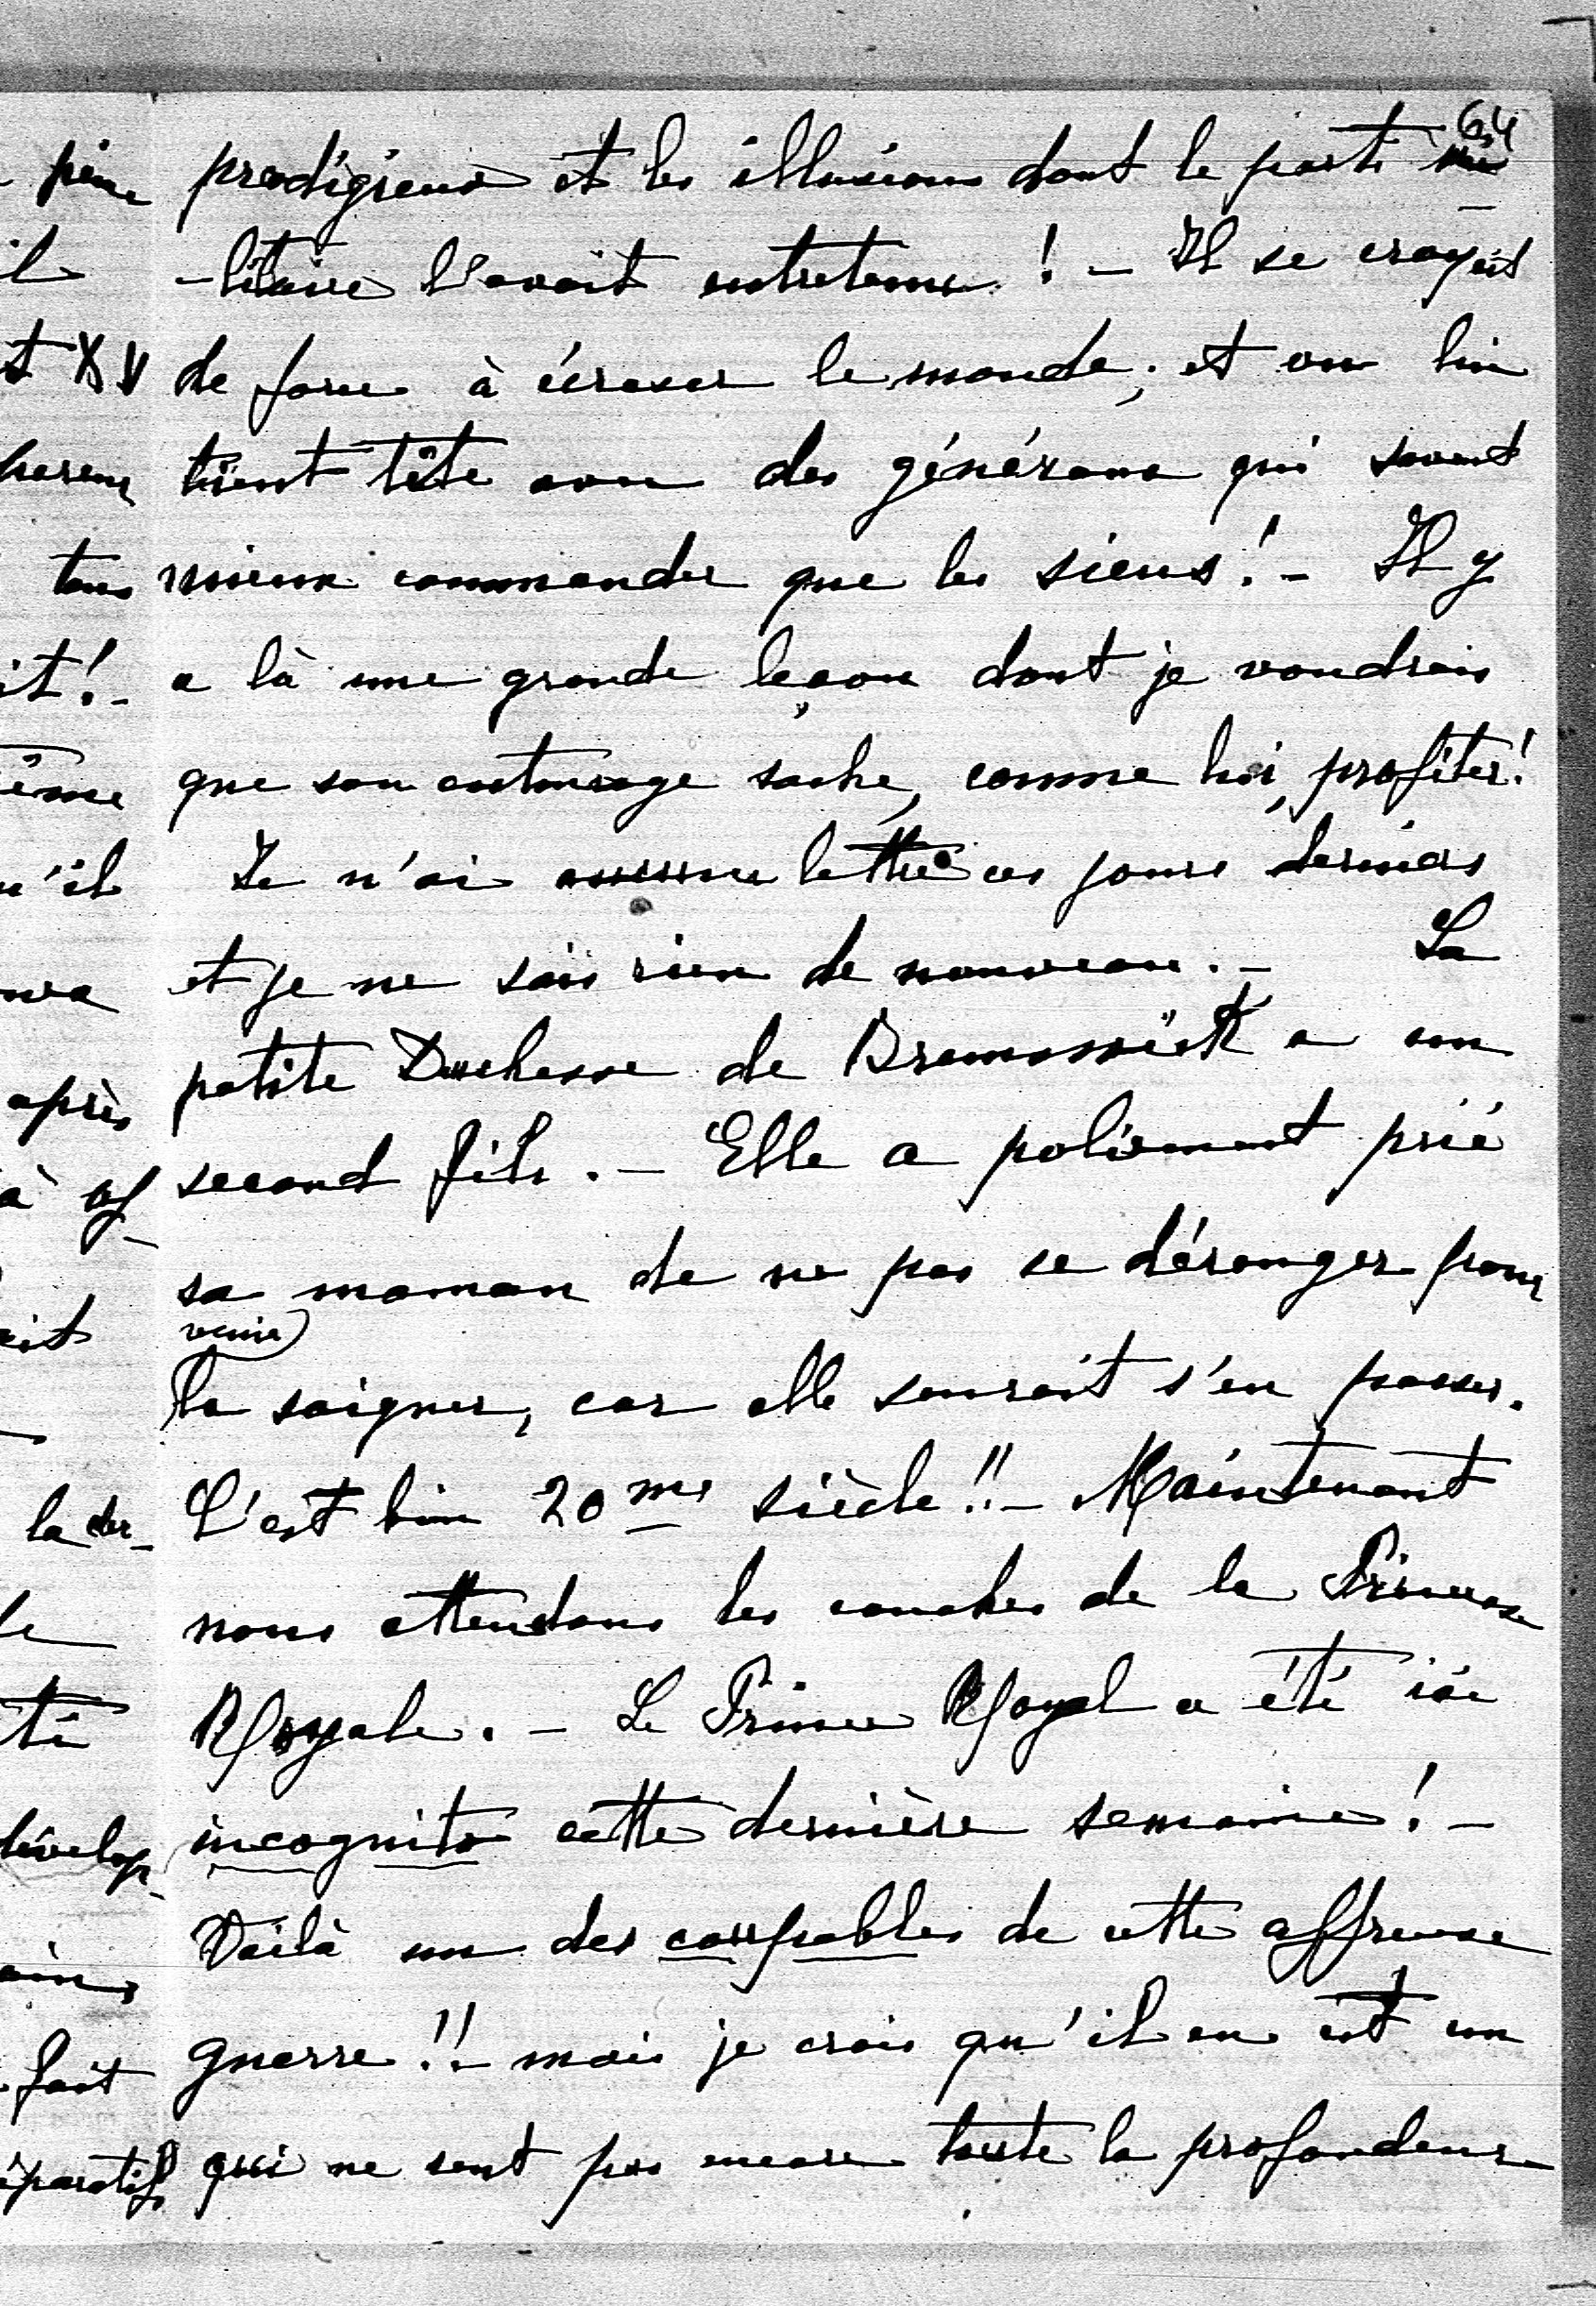 64
prodigieux et les illusions dont le parti mi
-litaire l'avait entretenu! – Il se croyait
de force à écraser le monde; et on lui
tient tête avec des généraux qui savent
mieux commander que les siens! – Il y
a là une grande leçon dont je voudrais
que son entourage sache, comme lui, profiter!
Je n'ai aucune lettre ces jours derniers
et je ne sais rien de nouveau. – La
petite Duchesse de Brunswick a un
second fils. – Elle a poliment prié
sa maman de ne pas se déranger pour
venir
la soigner, car elle saurait s'en passer.
C'est bien 20me siècle!! – Maintenant
nous attendons les couches de la Princesse
Royale. – Le Prince Royal a été ici
incognito cette dernière semaine! –
Voilà un des coupables de cette affreuse
guerre!! – mais je crois qu'il en est un
qui ne sent pas encore toute la profondeur
il
t XV
tous
it! –
ême
u'il
après
à af-
ait
la der-
le
té
dévelop-
fait
éparatifs